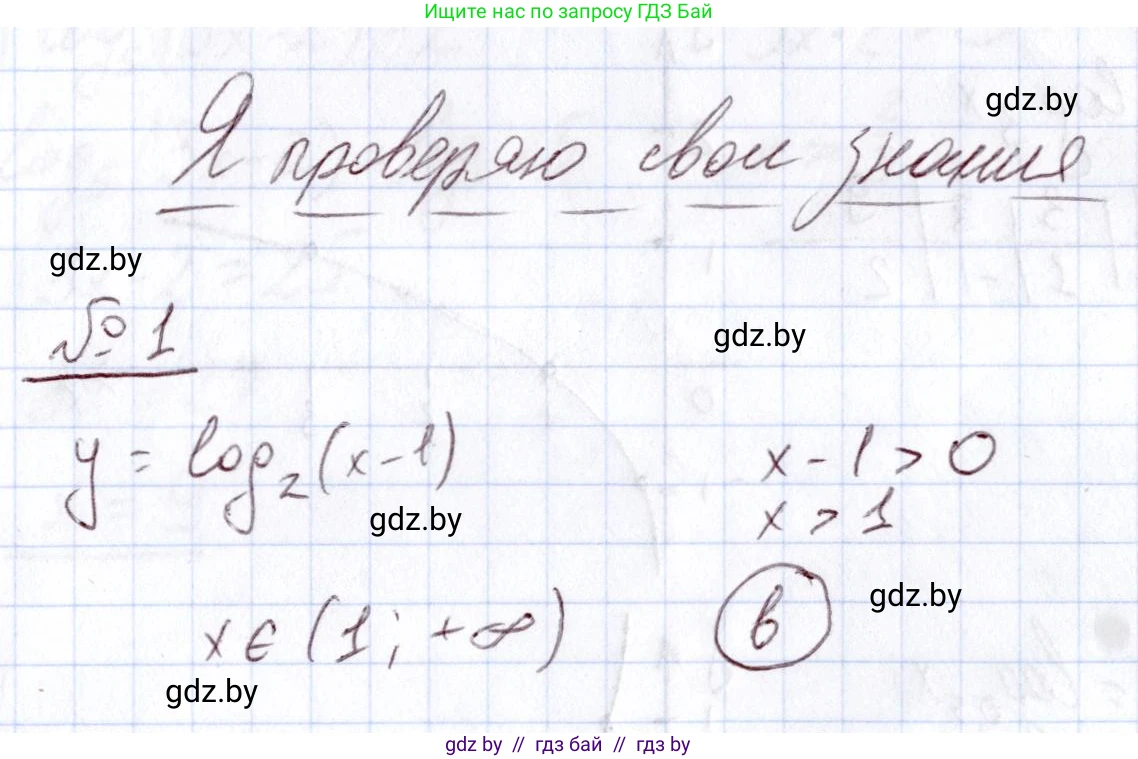 Ищите нас по запросу ГДЗ Бай
gdz.by
Я проверяю свои знания
gdz.by
№ 1
gdz.by
y = log₂(x-1)
x - 1 > 0
gdz.by
x > 1
gdz.by
x ∈ (1; +∞)
в
gdz.by
gdz by // гдз бай // гдз by